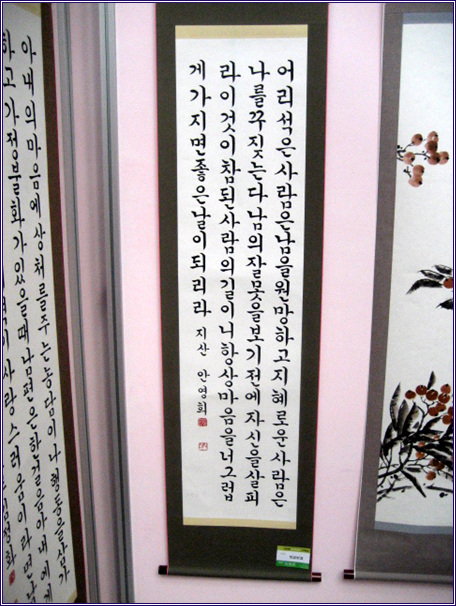 아내의마음에상처를주는농담이나행동을삼가
하고가정불화가있을때남편은한걸음아내에게
사랑스러움이라면
어리석은사람은남을원망하고지혜로운사람은
나를꾸짖는다남의잘못을보기전에자신을살피
라이것이참된사람의길이니항상마음을너그럽
게가지면좋은날이되리라 지산 안영희